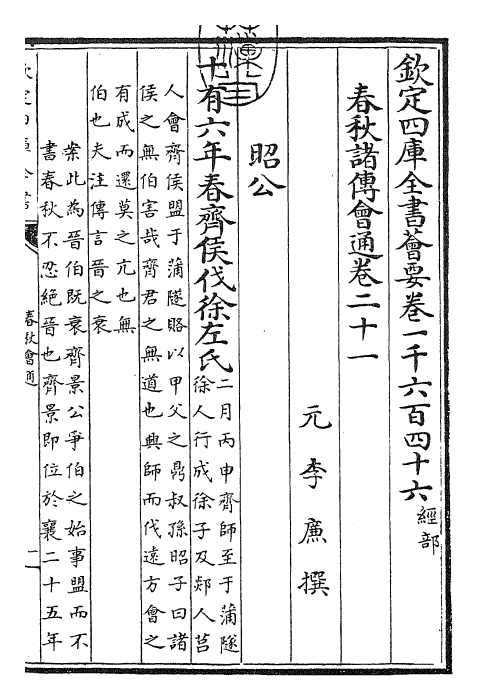 欽定四庫全書薈要卷一千六百四十六 經部
春秋諸傳會通卷二十一
元 李廉 撰
昭公
十有六年春齊侯伐徐左氏
二月丙申齊師至于蒲隧
徐人行成徐子及郯人莒
人會齊侯盟于蒲隧賂以甲父之鼎叔孫昭子曰諸
侯之無伯害哉齊君之無道也興師而伐遠方會之
有成而還莫之亢也無
伯也夫注傳言晉之衰
案此為晉伯既衰齊景公爭伯之始事盟而不
書春秋不忍絕晉也齊景即位於襄二十五年
春秋會通
一